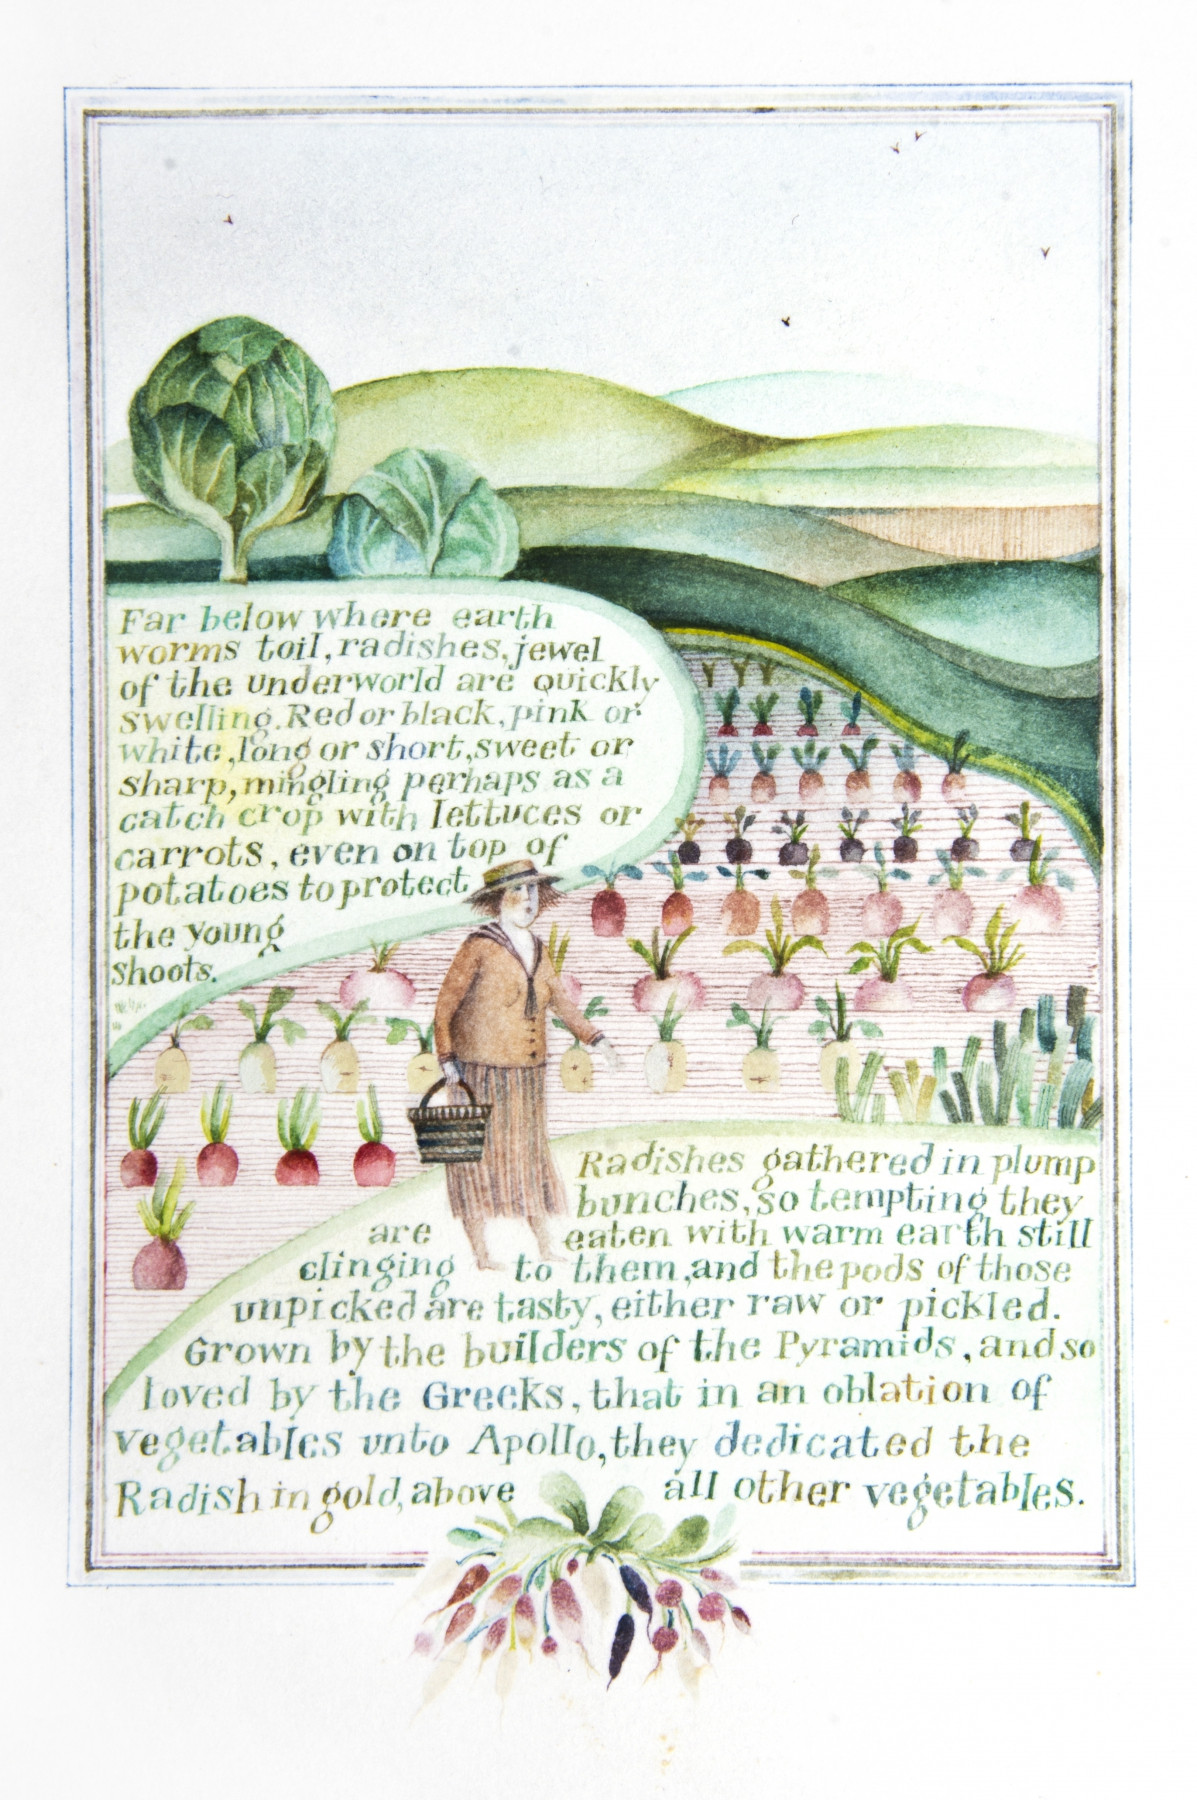 Far below where earth
worms toil, radishes, jewel
of the underworld are quickly
swelling. Red or black, pink or
white, long or short, sweet or
sharp, mingling perhaps as a
catch crop with lettuces or
carrots, even on top of
potatoes to protect
the young
shoots.
Radishes gathered in plump
bunches, so tempting they
are eaten with warm earth still
clinging to them, and the pods of those
unpicked are tasty, either raw or pickled.
Grown by the builders of the Pyramids, and so
loved by the Greeks, that in an oblation of
vegetables unto Apollo, they dedicated the
Radish in gold, above all other vegetables.